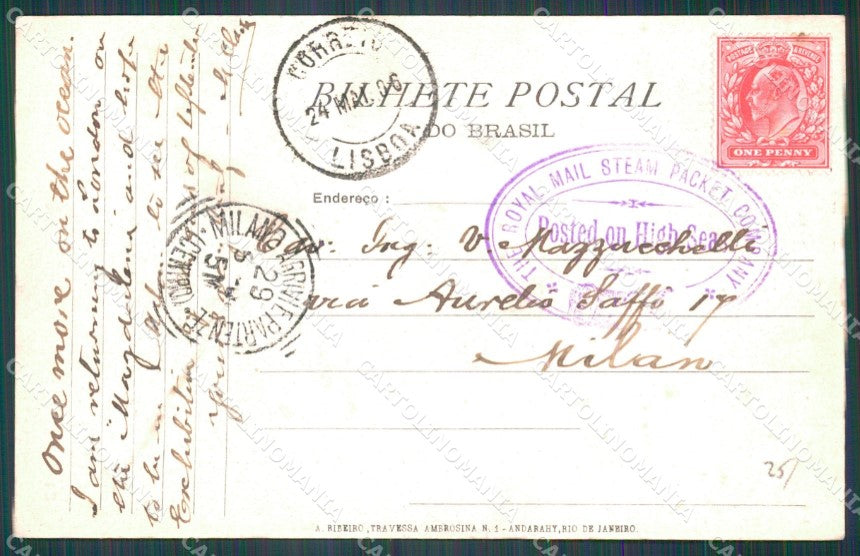 Once more on the ocean.
I am returning to London on
the Magdalena and hope
to be able to see the
Exhibition
CORREIO
24 MAI. 06
LISBOA
BILHETE POSTAL
DO BRASIL
POSTAGE & REVENUE
ONE PENNY
THE ROYAL MAIL STEAM PACKET COMPANY
Posted on High Seas
Endereço :
MILANO ARRIVI E PARTENZE
29
Cav: Ing. V Mazzucchelli
via Aurelio Saffi 17
Milan
25/
A. RIBEIRO, TRAVESSA AMBROSINA N. 1 - ANDARAHY, RIO DE JANEIRO.
CARTOLINOMANIA